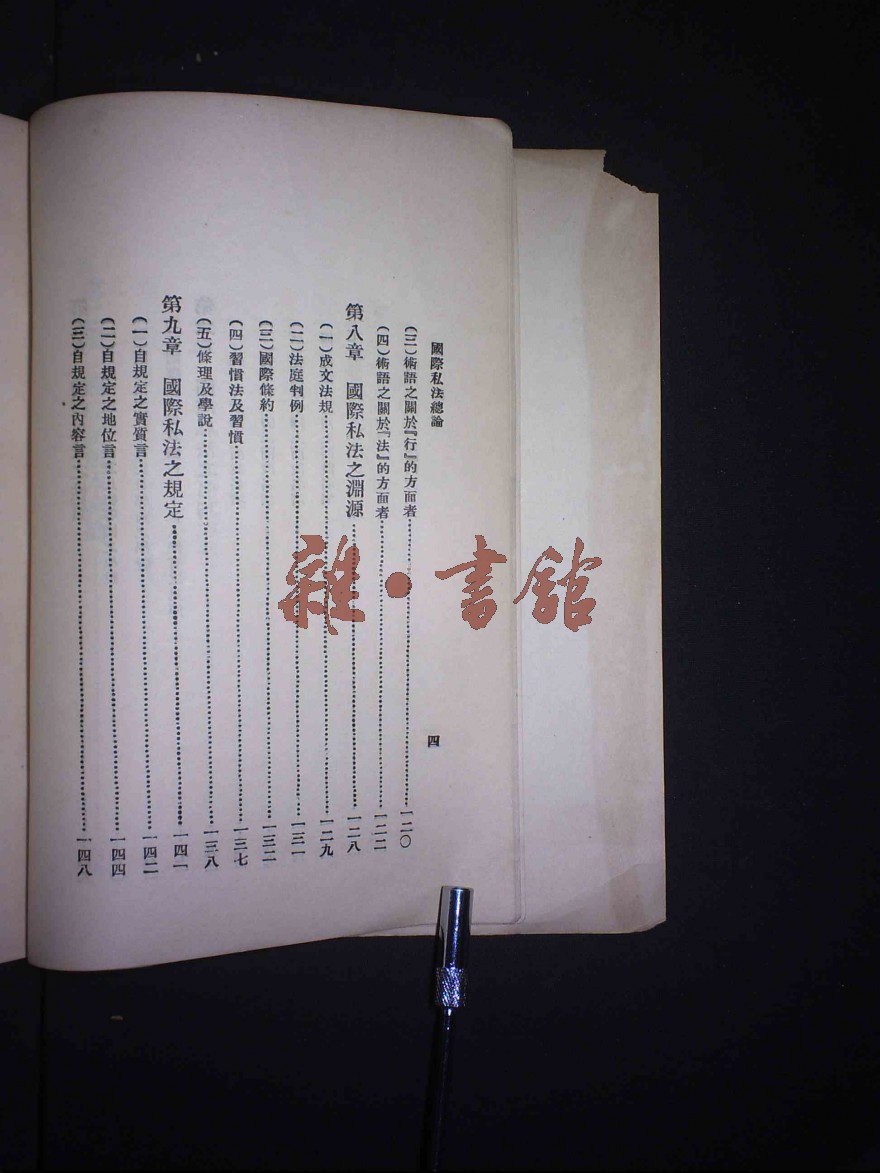 國際私法總論
四
(三)術語之關於『行』的方面者……一二〇
(四)術語之關於『法』的方面者……一二二
第八章 國際私法之淵源……一二八
(一)成文法規……一二九
(二)法庭判例……一三一
(三)國際條約……一三二
(四)習慣法及習慣……一三七
(五)條理及學說……一三八
第九章 國際私法之規定……一四一
(一)自規定之實質言……一四二
(二)自規定之地位言……一四四
(三)自規定之內容言……一四八
雜·書館